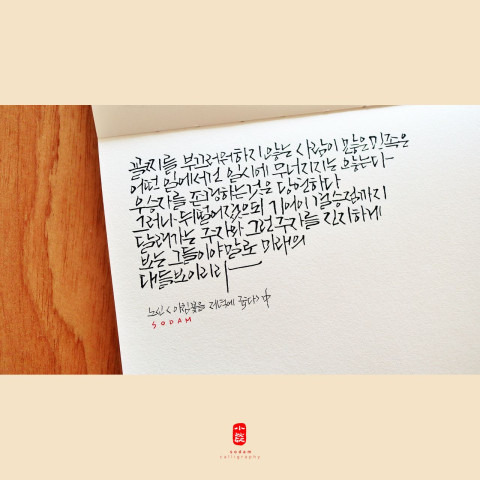 꼴찌를 부끄러워하지 않는 사람이 많은 민족은
어떤 일에서건 일시에 무너지지는 않는다
우승자를 존경하는 것은 당연하다
그러나 뒤떨어졌으되 기어이 결승점까지
달려가는 주자와 그런 주자를 진지하게
보는 그들이야말로 미래의
대들보이리라
노신 <아침꽃을 저녁에 줍다> 中
SODAM
小
sodam
calligraphy